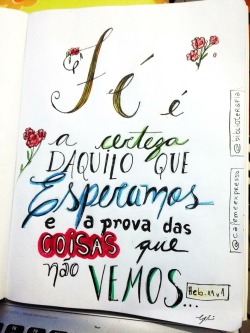 Fé é
a certeza
DAQUILO QUE
Esperamos
e a prova das
COISAS que
não VEMOS...
Heb. 11.1
@bibliografia
@cafemeexpresso